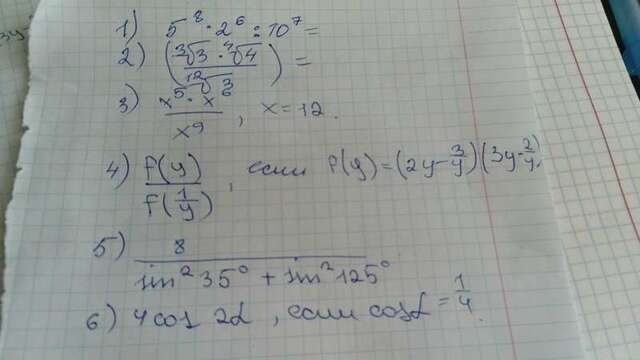 1) 5⁸ · 2⁶ : 10⁷ =
2) (∛3 · ∜4 / ¹²√3) =
3) x⁵ · x⁶ / x⁹, x = 12.
4) f(y) / f(1/y), если f(y) = (2y - 3/y)(3y - 2/y),
5) 8 / sin² 35° + sin² 125°
6) 4 cos 2α, если cos α = 1/4.